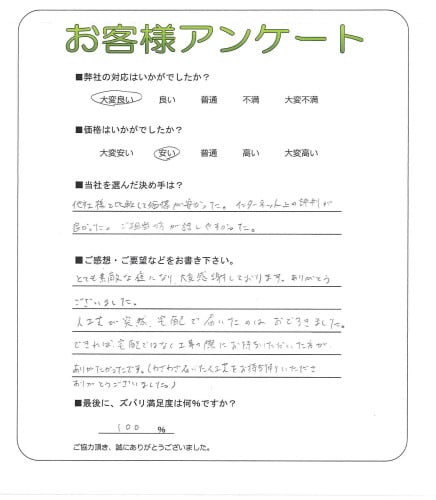 お客様アンケート
■弊社の対応はいかがでしたか？
大変良い 良い 普通 不満 大変不満
■価格はいかがでしたか？
大変安い 安い 普通 高い 大変高い
■当社を選んだ決め手は？
他社様と比較して価格が安かった。インターネット上の評判が
良かった。ご担当の方が話しやすかった。
■ご感想・ご要望などをお書き下さい。
とても素敵な庭になり、大変感謝しております。ありがとう
ございました。
人工芝が突然、宅配で届いたのはおどろきました。
できれば、宅配ではなく工事の際にお持ちいただいた方が、
ありがたかったです。(わざわざ届いた人工芝をお持ち帰りいただき
ありがとうございました。)
■最後に、ズバリ満足度は何％ですか？
100 ％
ご協力頂き、誠にありがとうございました。